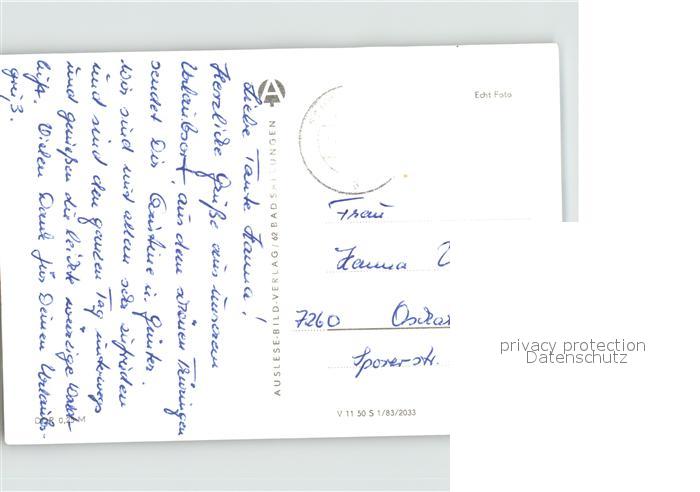 Liebe Tante Hanna!
Herzliche Grüße aus unserem
Urlaubsort, aus dem schönen Thüringen
sendet Dir Christine u. Günter.
Wir sind mit allem sehr zufrieden
und sind den ganzen Tag unterwegs
und genießen die leicht würzige Wald-
luft. Vielen Dank für Deinen Urlaubs-
gruß.
AUSLESE-BILD-VERLAG / 62 BAD SALZUNGEN
Echt Foto
Frau
Hanna
7260 Oschatz
Sporerstr.
V 11 50 S 1/83/2033
privacy protection
Datenschutz